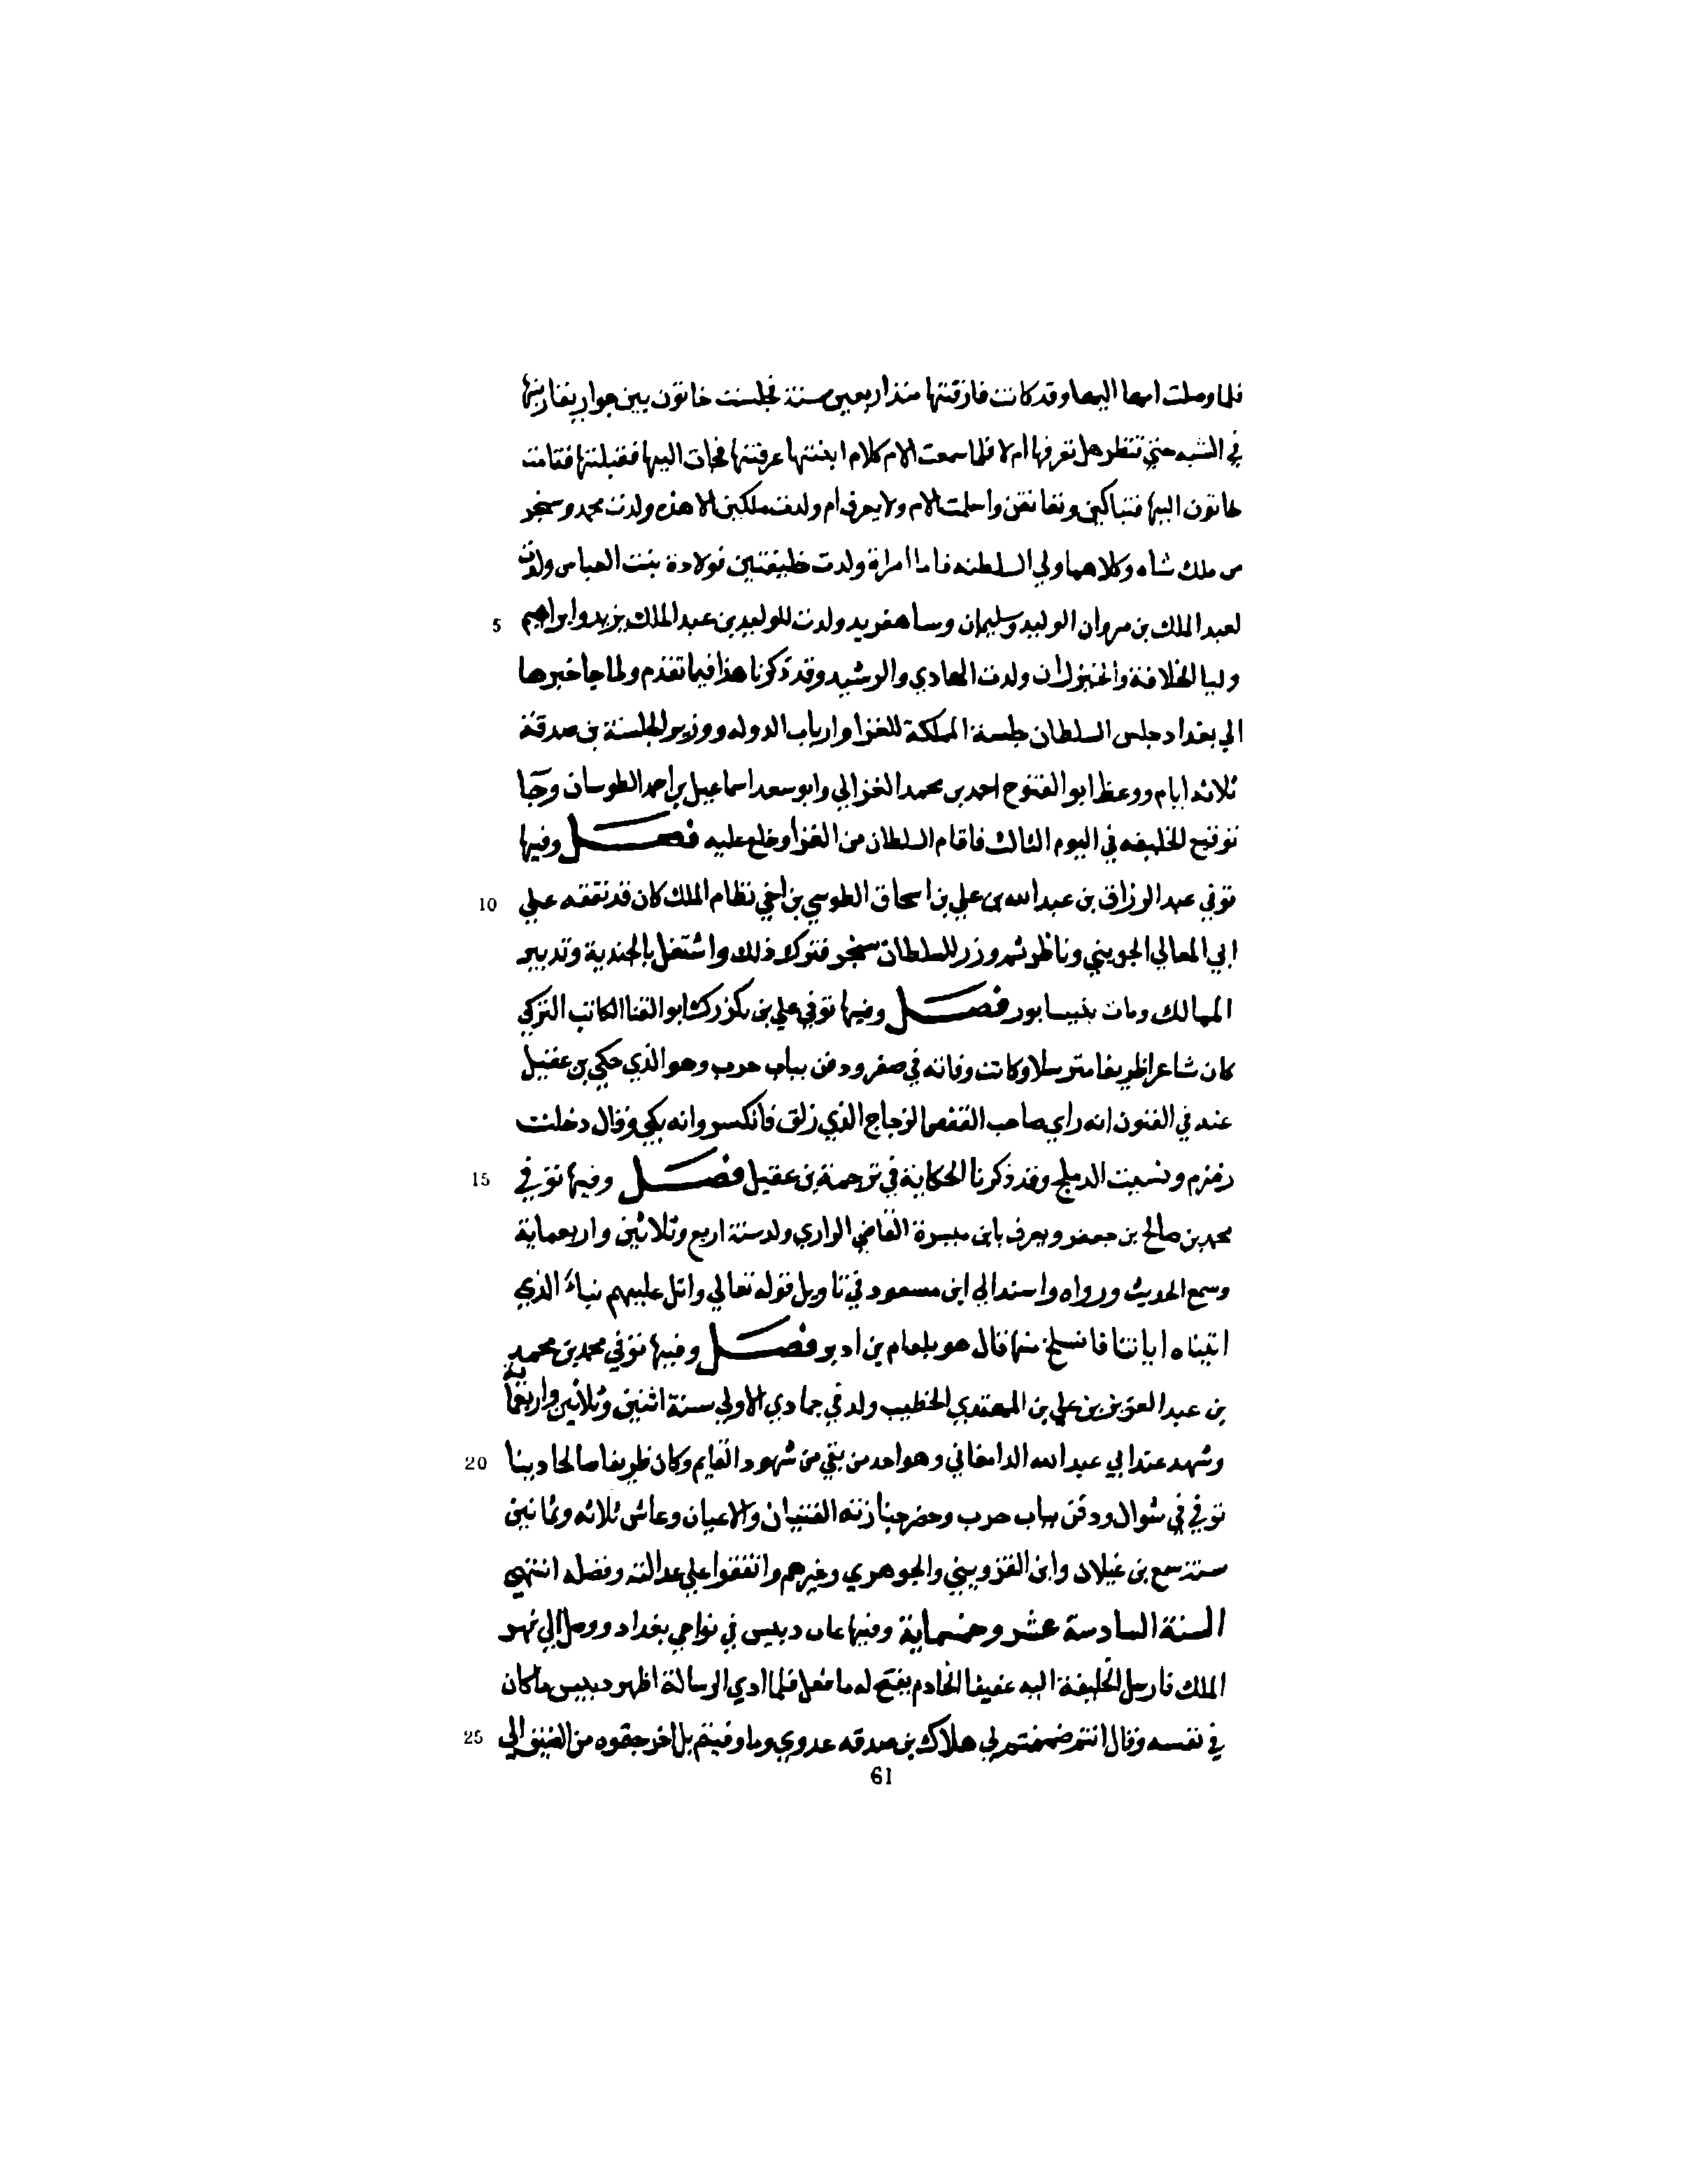 فلما وصلت امها اليها وقد كانت فارقتها منذ اربعين سنة فجلست خاتون بين جوار يقاربنها
في الشبه حتي تنظر هل تعرفها ام لا فلما سمعت الام كلام ابنتها عرفتها فجات اليها فقبلتها فقامت
خاتون اليها فتباكين وتعانقن واسلمت الام ولا يعرف ام ولدت ملكين الا هذه ولدت محمد وسنجر
من ملك شاه وكلاهما ولي السلطنه فاما امراة ولدت خليفتين فولادة بنت العباس ولدت
5 لعبد الملك بن مروان الوليد وسليمان وساهفريد ولدت للوليد بن عبد الملك يزيد وابراهيم
وليا الخلافة والخيزران ولدت الهادي والرشيد وقد ذكرنا هذا فيما تقدم ولما جا خبرها
الي بغداد جلس السلطان جلسة المملكة للعزا وارباب الدوله ووزير الجلسة بن صدقة
ثلاثه ايام ووعظ ابو الفتوح احمد بن محمد الغزالي وابو سعد اسماعيل بن احمد الطوسان وجا
توقيع الخليفه في اليوم الثالث فاقام السلطان من العزا وخلع عليه فصل وفيها
10 توفي عبد الرزاق بن عبد الله بن علي بن اسحاق الطوسي بن اخي نظام الملك كان قد تفقه علي
ابي المعالي الجويني وناظر ثم وزر للسلطان سنجر فترك ذلك واشتغل بالجندية وتدبير
الممالك ومات بنيسابور فصل وفيها توفي علي بن يكزركش ابو الثنا الكاتب التركي
كان شاعرا ظريفا مترسلا وكانت وفاته في صفر ودفن بباب حرب وهو الذي حكي بن عقيل
عنه في الفنون انه راي صاحب القفص الزجاج الذي زلق فانكسر وانه بكي وقال دخلت
15 زمزم ونسيت الدملج وقد ذكرنا الحكاية في ترجمة بن عقيل فصل وفيها توفي
محمد بن صالح بن جعفر ويعرف بابن ميسرة القاضي الرازي ولد سنة اربع وثلاثين واربعماية
وسمع الحديث ورواه واسند الي ابن مسعود في تاويل قوله تعالي واتل عليهم نباء الذي
اتيناه اياتنا فانسلخ منها قال هو بلعام بن ادبر فصل وفيها توفي محمد بن محمد
بن عبد العزيز بن علي بن المهتدي الخطيب ولد في جمادي الاولي سنة اثنين وثلاثين واربعماية
20 وشهد عند ابي عبد الله الدامغاني وهو احد من بقي من شهود القايم وكان ظريفا صالحا دينا
توفي في شوال ودفن بباب حرب وحضر جنازته القتيبان والاعيان وعاش ثلاثه وثمانين
سنة سمع بن غيلان وابن القزويني والجوهري وغيرهم واتفقوا علي عدالته وفضله انتهي
السنة السادسة عشر وخمسماية وفيها عاث دبيس في نواحي بغداد ووصل الي نهر
الملك فارسل الخليفة اليه عفيفا الخادم يقبح له ما فعل فلما ادي الرسالة اظهر دبيس ما كان
25 في نفسه وقال انتم ضمنتم لي هلاك بن صدقه عدوي وما وفيتم بل اخرجتموه من الضيق الي
61